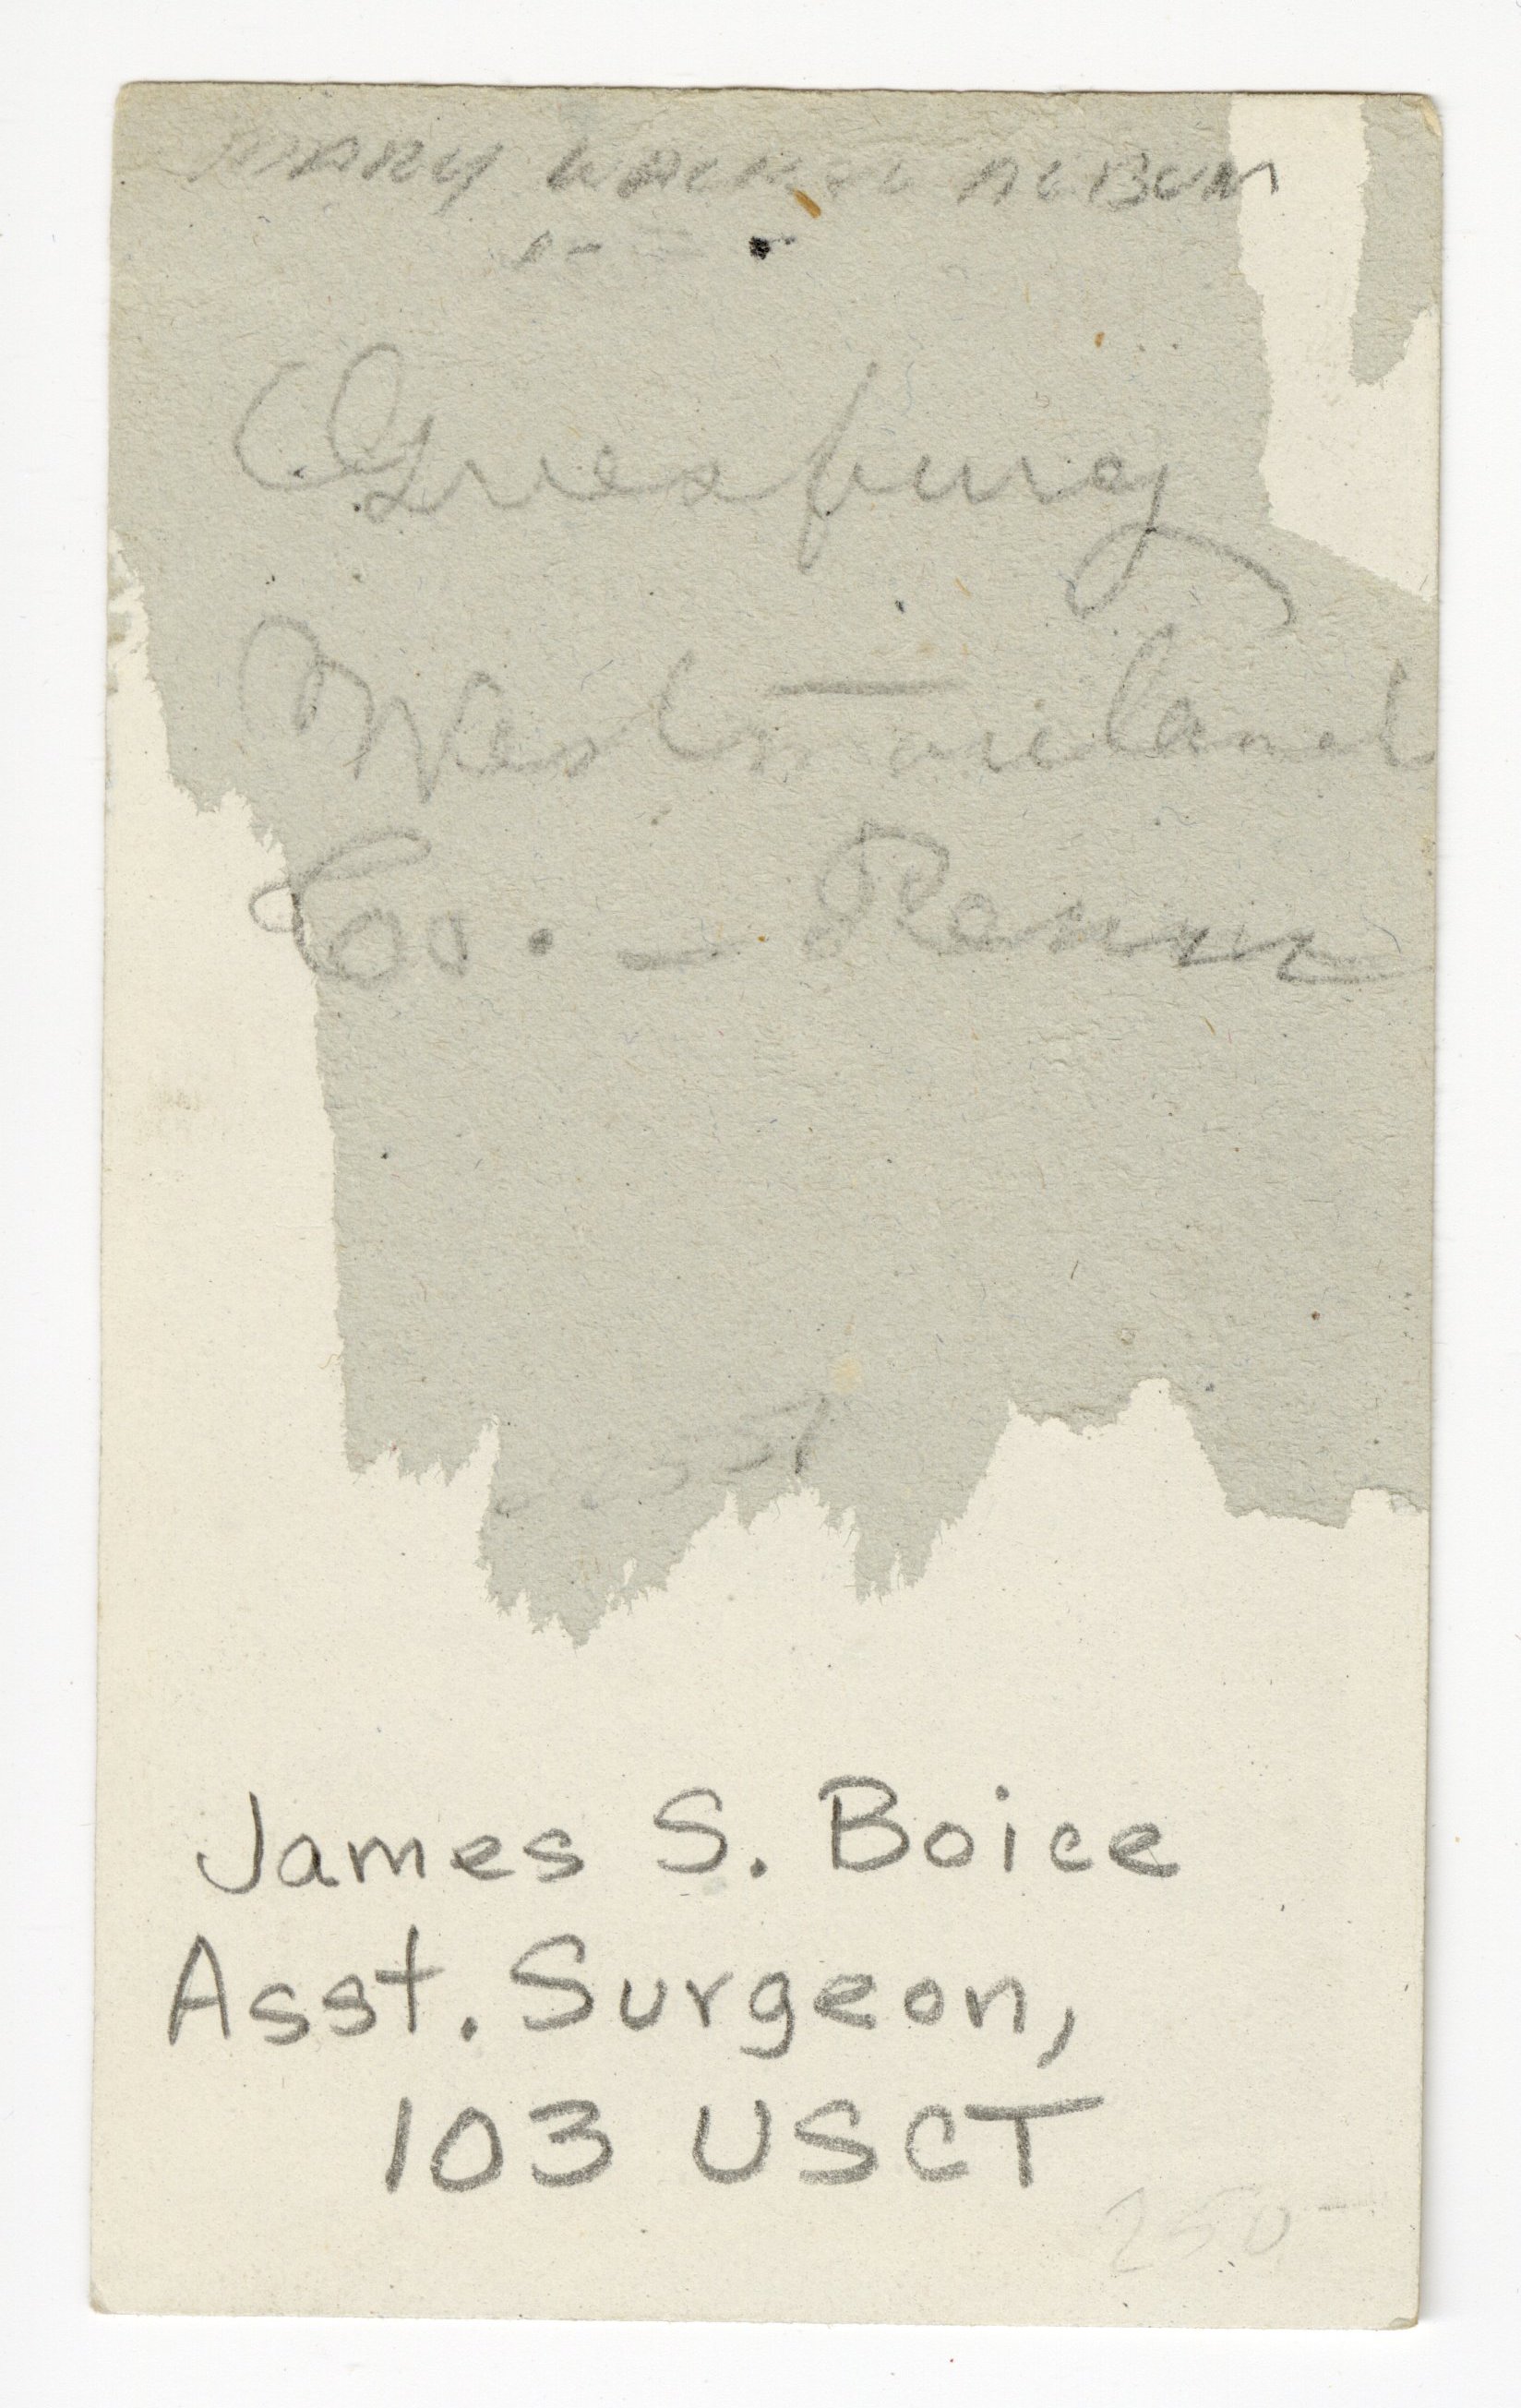 MARY WALKER ALBUM
Westmoreland
Co. – Penn
James S. Boice
Asst. Surgeon,
103 USCT
250 –